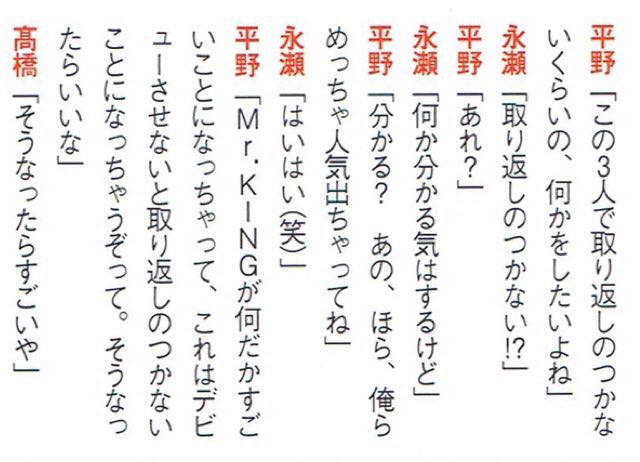 平野「この3人で取り返しのつかな
いくらいの、何かをしたいよね」
永瀬「取り返しのつかない!?」
平野「あれ？」
永瀬「何か分かる気はするけど」
平野「分かる？　あの、ほら、俺ら
めっちゃ人気出ちゃってね」
永瀬「はいはい(笑)」
平野「Mr.KINGが何だかすご
いことになっちゃって、これはデビ
ューさせないと取り返しのつかない
ことになっちゃうぞって。そうなっ
たらいいな」
髙橋「そうなったらすごいや」